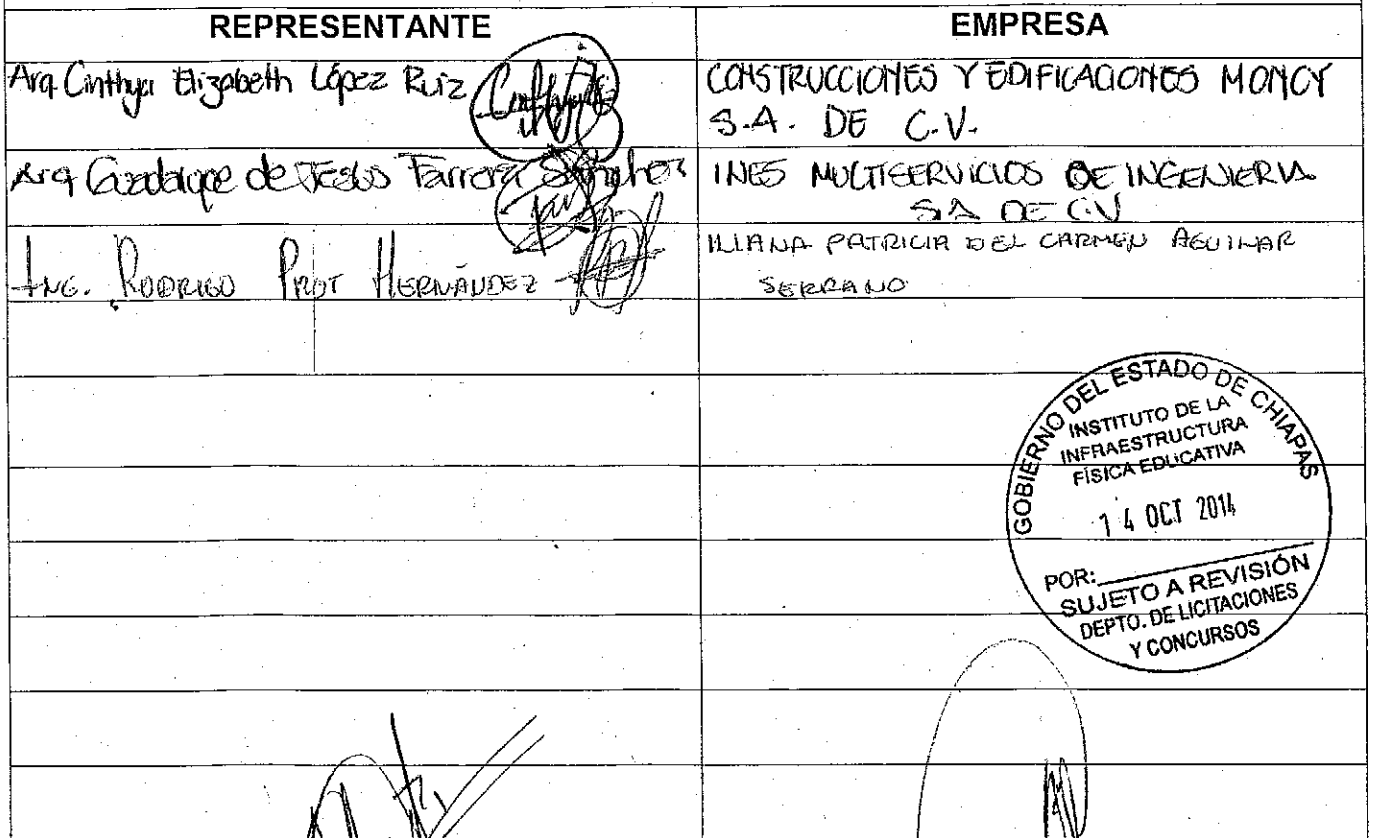 REPRESENTANTE
EMPRESA
Arq. Cinthya Elizabeth López Ruiz
CONSTRUCCIONES Y EDIFICACIONES MONCY
S.A. DE C.V.
Arq Guadalupe de Jesus Farrera Sánchez
INES MULTISERVICIOS DE INGENIERIA
SA DE C.V
ING. RODRIGO PROT HERNÁNDEZ
ILIANA PATRICIA DEL CARMEN AGUILAR
SERRANO
GOBIERNO DEL ESTADO DE CHIAPAS
INSTITUTO DE LA
INFRAESTRUCTURA
FÍSICA EDUCATIVA
14 OCT 2014
POR:
SUJETO A REVISIÓN
DEPTO. DE LICITACIONES
Y CONCURSOS